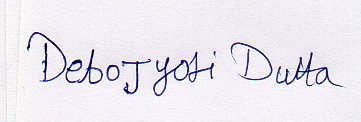 Debojyoti Dutta